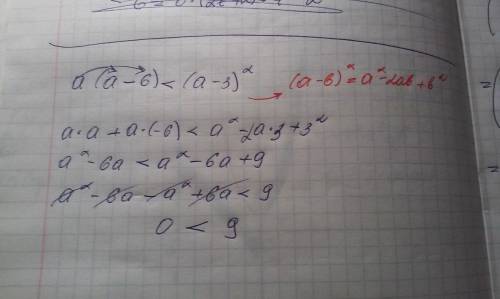 a(a-6) < (a-3)² → (a-b)² = a²-2ab+b²
a·a+a·(-6) < a²-2a·3+3²
a²-6a < a²-6a+9
a²-6a-a²+6a < 9
0 < 9